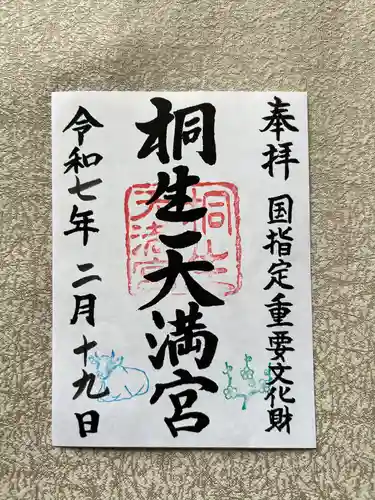 奉拝
国指定重要文化財
桐生天満宮
令和七年 二月十九日